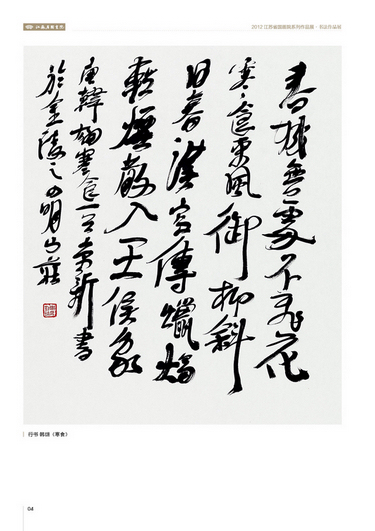 江苏省国画院
2012江苏省国画院系列作品展·书法作品展
春城无处不飞花
寒食东风御柳斜
日暮汉宫传蜡烛
轻烟散入五侯家
唐韩翃寒食一首 书
於金陵之四明山庄
行书 韩翃《寒食》
04